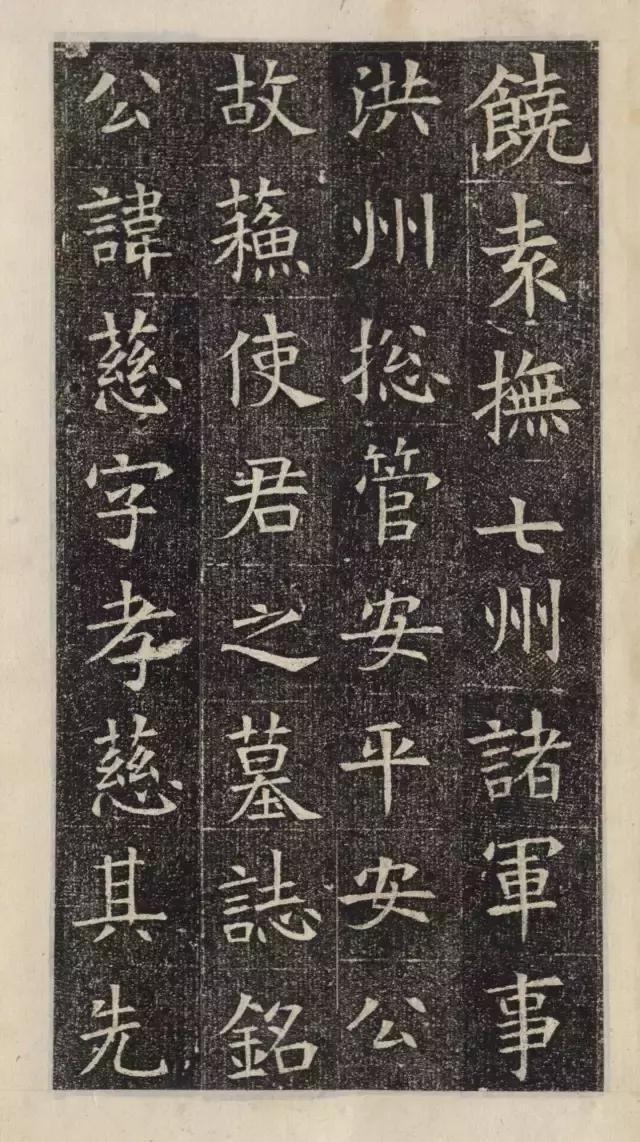 饒袁撫七州諸軍事
洪州捴管安平安公
故蘓使君之墓誌銘
公諱慈字孝慈其先